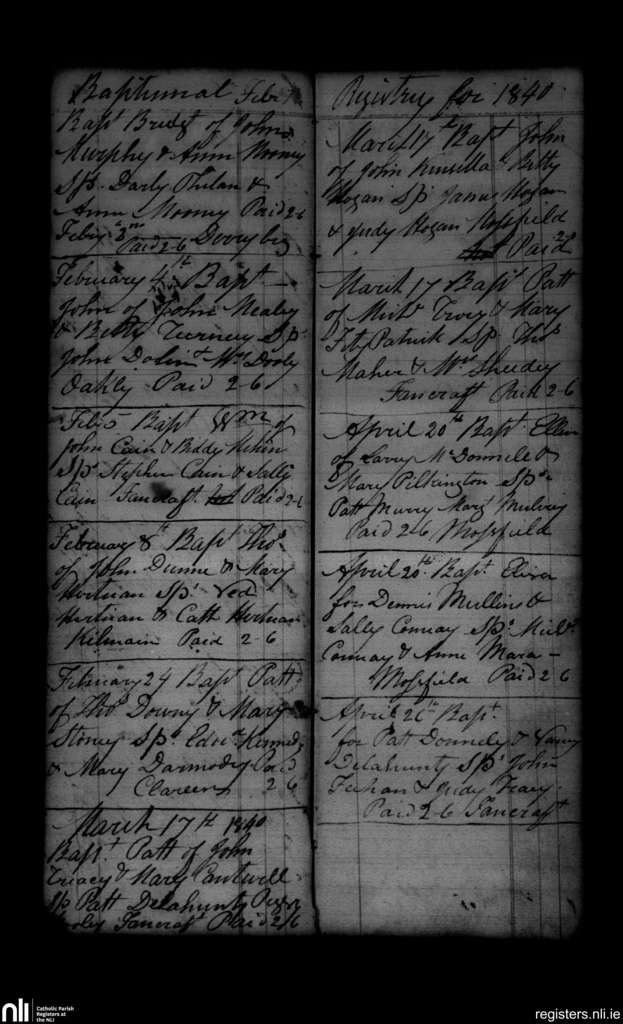 Baptismal Feby
Bapt Bridgt of John
Murphy & Ann Mooney
Sps Darby Phelan &
Ann Mooney Paid 2-6
Feby 3rd
Paid 2-6 Derrybeg
February 4th Bapt
John of John Nealey
& Betty Tierney Sps
John Dolin & Mrs Dooly
Oakly Paid 2-6
Feby 5 Bapt Wm of
John Cain & Biddy
Sps Stephen Cain & Sally
Cain Fancraft Paid 2-6
February 8th Bapt Thos
of John Dunne & Mary
Hertnan Sps Ned
Hertnan & Cath Hertnan
Kilmain Paid 2 6
February 24 Bapt Patt
of Thos Downy & Mary
Storey Sps Edwd Kennedy
& Mary Darmody Paid
Clareen 2 6
March 17th 1840
Bapt Patt of John
Treacy & Mary Cantwell
Sps Patt Delahunty
Fancraft Paid 2/6
Registry for 1840
March 17th Bapt John
of John Kinsella Betty
Hogan Sps James Hogan
& Judy Hogan Mossfield
Paid 2 6
March 17 Bapt Patt
of Michl Troy & Mary
FitzPatrick Sps Thos
Maher & Mrs Sheedy
Fancraft Paid 2-6
April 20th Bapt Ellen
of Larry McDonnell &
Mary Pilkington Sps
Patt Murry Margt Mulvey
Paid 2-6 Mossfield
April 20th Bapt Eliza
for Dennis Mullins &
Sally Conway Sps Michl
Conway & Anne Mara -
Mossfield Paid 2 6
April 26th Bapt
for Patt Donnely & Nancy
Delahunty Sps John
Feehan & Judy Treacy
Paid 2-6 Fancraft
nli Catholic Parish
Registers at
the NLI
registers.nli.ie